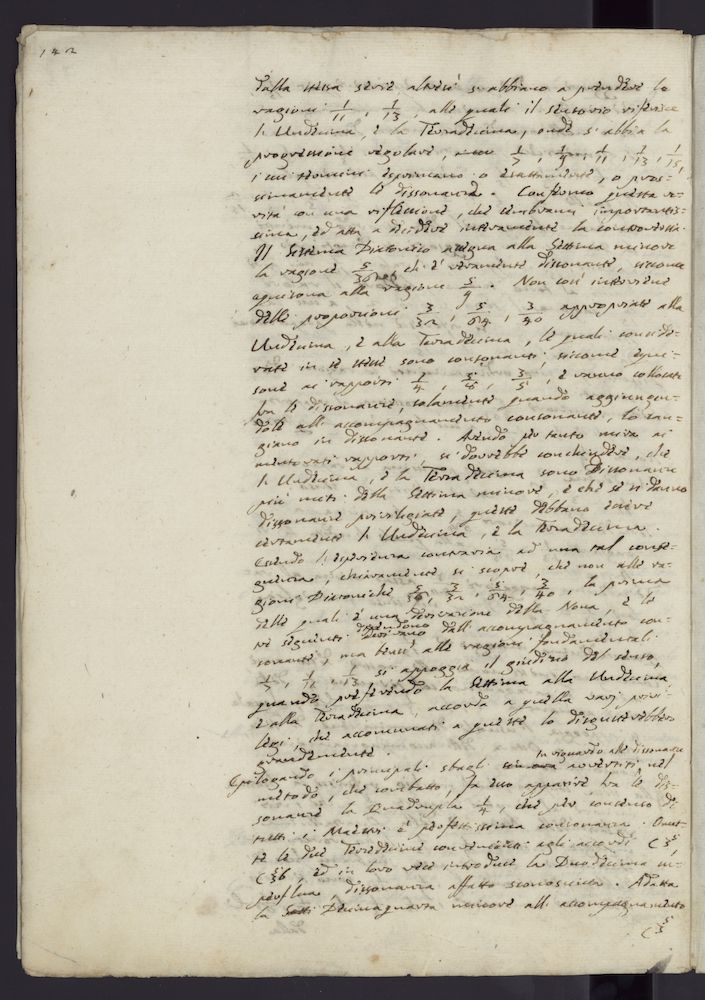 142
dalla stessa serie altresì si abbiano a prendere le
ragioni 1/11, 1/13, alle quali il sensorio riferisce
l'Undecima, e la Terzadecima, onde si abbia la
progressione regolare, 1/7, 1/9, 1/11, 1/13, 1/15,
i cui termini esprimano o esattamente, o pros=
simamente le dissonanze. Confermo questa ve=
rità con una riflessione, che sembrami importantis=
sima, ed atta a decidere interamente la controversia.
Il Sistema Diatonico assegna alla Settima minore
la ragione 5/36, ch'è veramente dissonante, siccome
equisona alla ragione 5/9. Non così interviene
delle proporzioni 3/32, 5/64, 3/40 appropriate alla
Undecima, e alla Terzadecima, le quali conside=
rate in se stesse sono consonanti, siccome equi=
sone ai rapporti 3/4, 5/8, 3/5, e vanno collocate
fra le dissonanze, solamente quando aggiungen=
dole all'accompagnamento consonante, lo can=
giano in dissonante. Avendo per tanto mira ai
mentovati rapporti, si dovrebbe conchiudere, che
l'Undecima, e la Terzadecima sono Dissonanze
più miti della Settima minore, e che se si danno
dissonanze privilegiate, queste debbano essere
certamente l'Undecima, e la Terzadecima.
Essendo l'esperienza contraria ad una tal conse=
guenza, chiaramente si scopre, che non alle ra=
gioni Diatoniche 5/36, 3/32, 5/64, 3/40, la prima
delle quali è una derivazione della Nona, e le
tre seguenti derivano dipendono dall'accompagnamento con=
sonante, ma bensì alle ragioni fondamentali
1/7, 1/11, 1/13 si appoggia il giudizio del senso,
quando preferendo la Settima alla Undecima,
e alla Terzadecima, accorda a quella varj privi=
legi, che accomunati a queste lo disgusterebbero
grandemente.
In riguardo alle dissonanze
Epilogando i principali sbagli avvertiti nel
metodo, che combatto, fa esso apparire tra le dis=
sonanze la Quadrupla 1/4, che per consenso di
tutti i Maestri è perfettissima consonanza. Omet=
te le due Terzedecime convenienti agli accordi C 5/3,
C 5/3 b, ed in loro vece introduce la Duodecima su=
perflua, dissonanza affatto sconosciuta. Adatta
la Settima minore all'accompagnamento
C 5/3